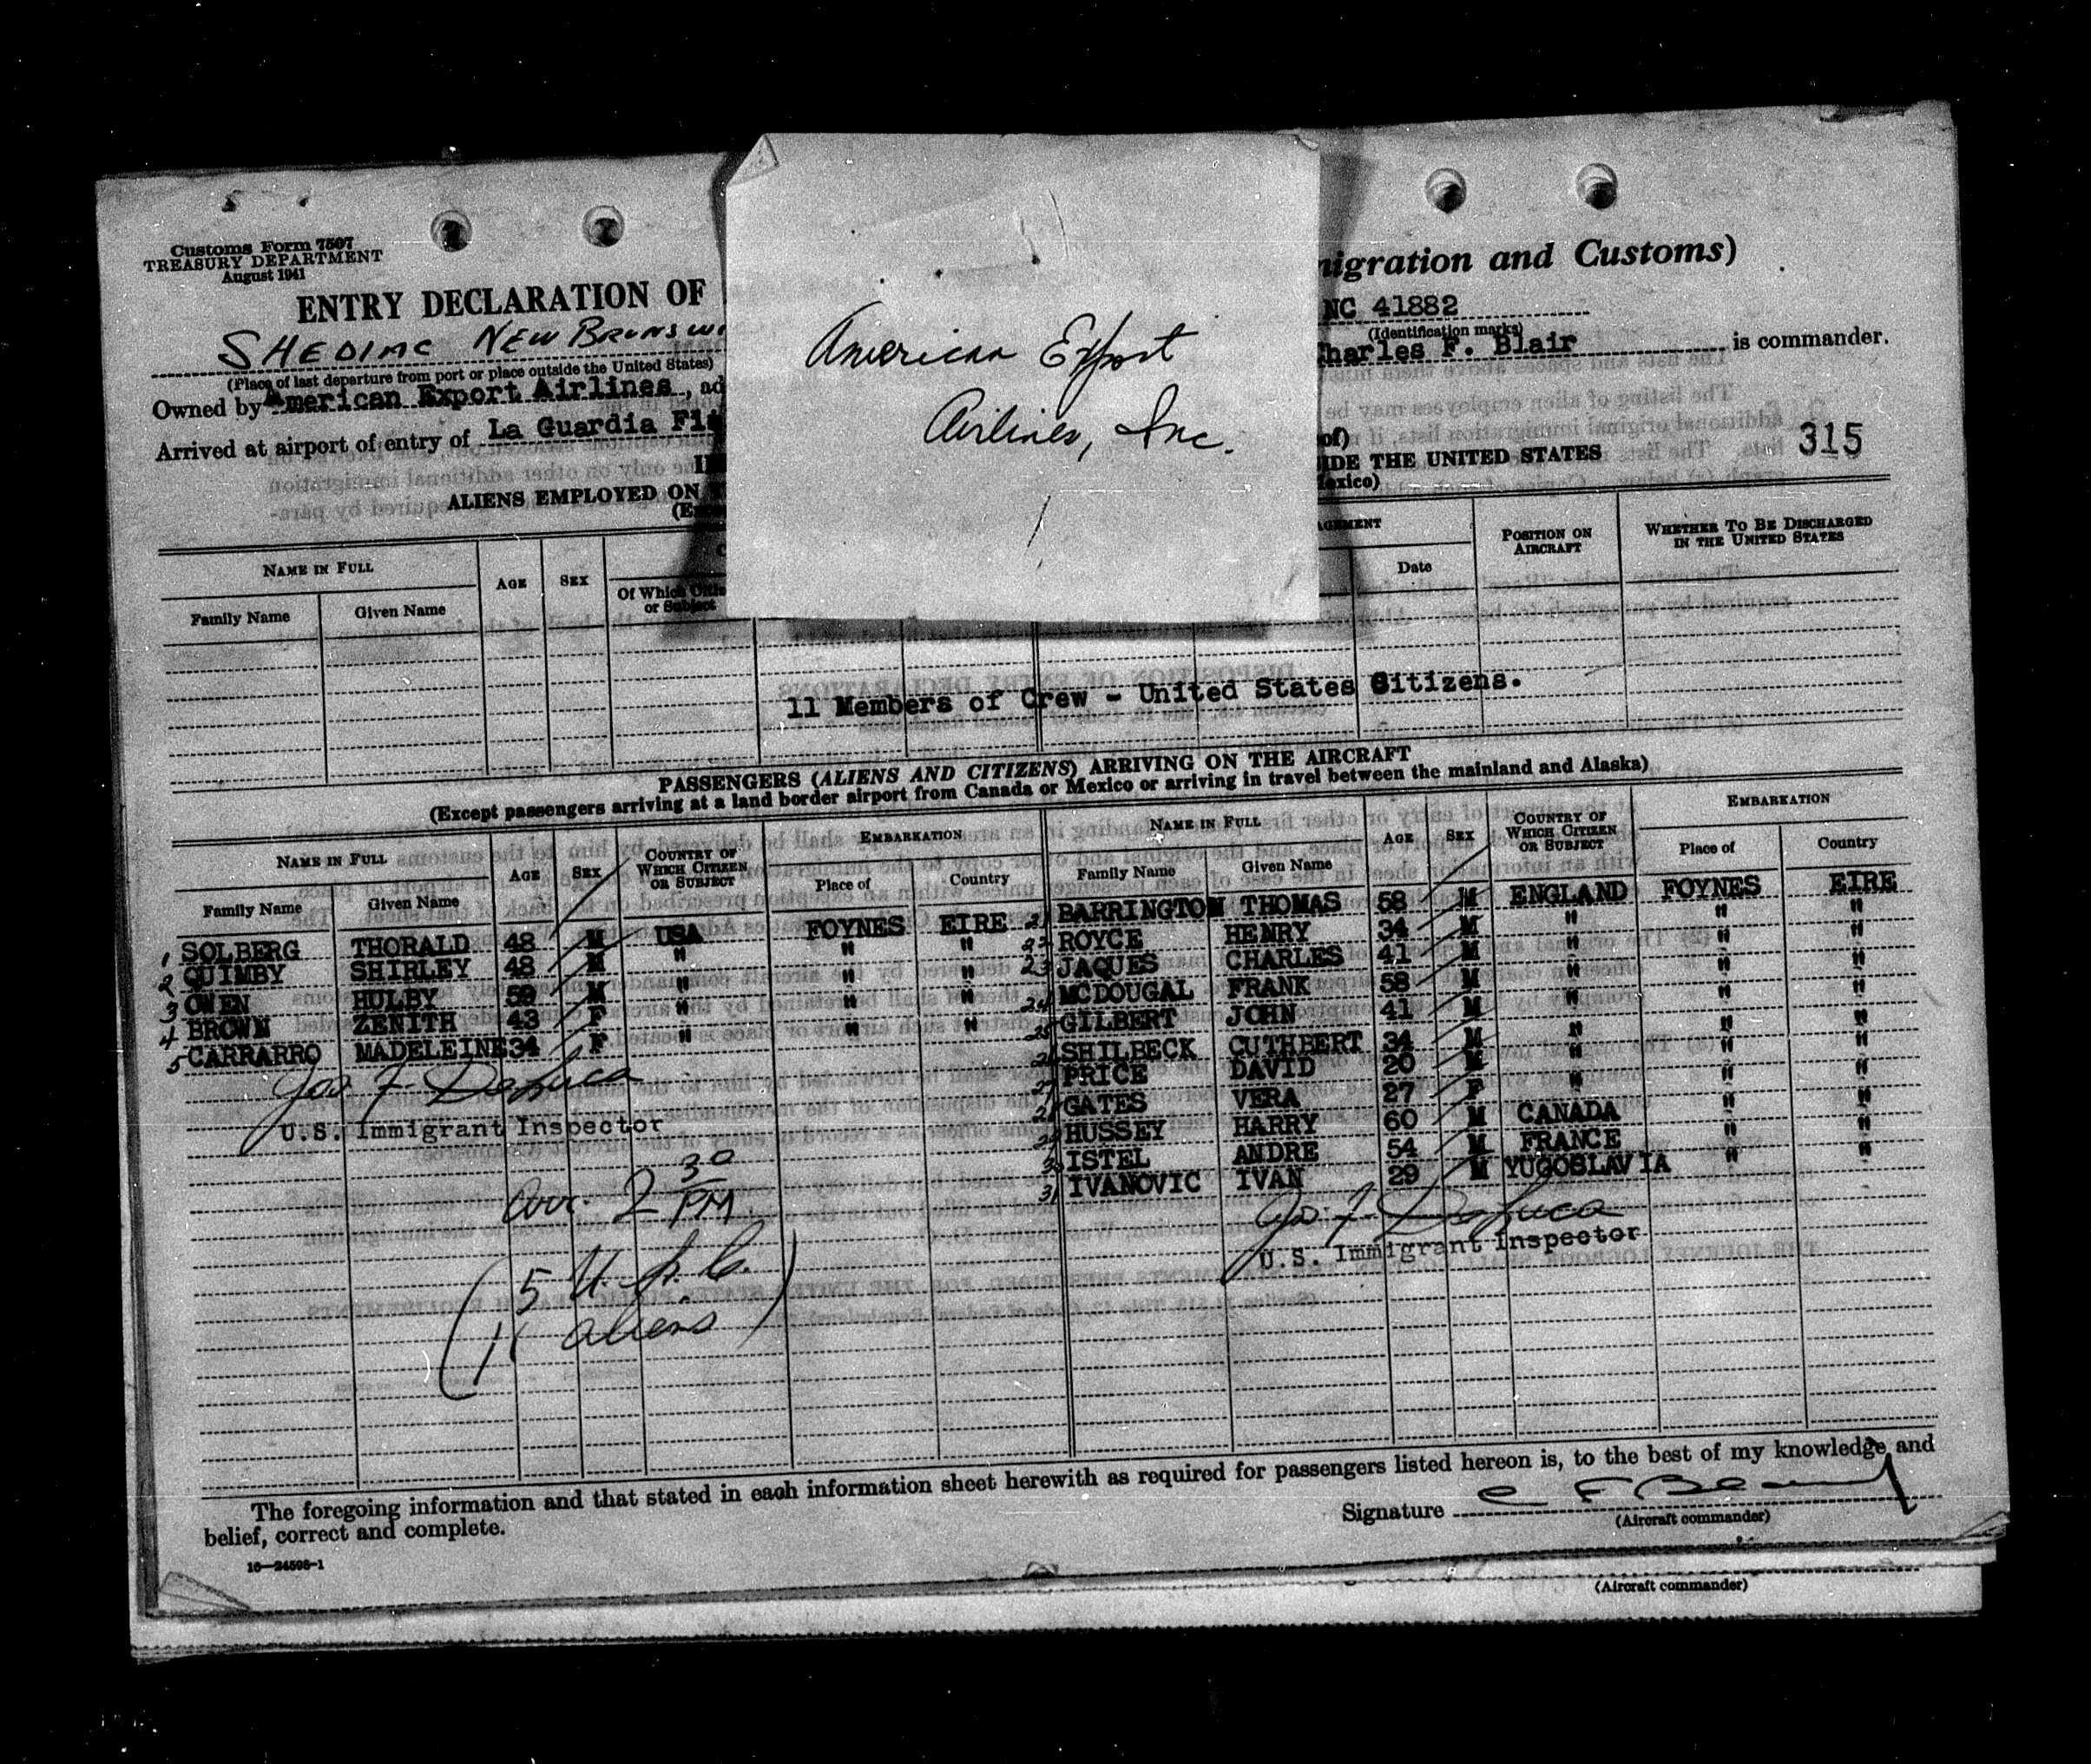 Customs Form 7507
TREASURY DEPARTMENT
August 1941
ENTRY DECLARATION OF
migration and Customs)
American Export
Airlines, Inc.
NC 41882
(Identification marks)
SHEDIAC NEW BRUNSWI
(Place of last departure from port or place outside the United States)
Charles F. Blair is commander.
Owned by American Export Airlines, ad
Arrived at airport of entry of La Guardia Fl
of)
IDE THE UNITED STATES 315
ALIENS EMPLOYED ON
Mexico)
NAME IN FULL AGE SEX Date POSITION ON AIRCRAFT WHETHER TO BE DISCHARGED IN THE UNITED STATES
Family Name Given Name Of Which Citizen or Subject
11 Members of Crew - United States Citizens.
PASSENGERS (ALIENS AND CITIZENS) ARRIVING ON THE AIRCRAFT
(Except passengers arriving at a land border airport from Canada or Mexico or arriving in travel between the mainland and Alaska)
NAME IN FULL AGE SEX COUNTRY OF WHICH CITIZEN OR SUBJECT EMBARKATION
Family Name Given Name Place of Country
1 SOLBERG THORALD 48 M USA FOYNES EIRE
2 QUIMBY SHIRLEY 48 M " " "
3 OWEN HULBY 59 M " " "
4 BROWN ZENITH 43 F " " "
5 CARRARRO MADELEINE 34 F " " "
Jos F. DeLuca
U.S. Immigrant Inspector
arr. 2 30 PM
(5 U.S.C.
11 aliens)
NAME IN FULL AGE SEX COUNTRY OF WHICH CITIZEN OR SUBJECT EMBARKATION
Family Name Given Name Place of Country
21 BARRINGTON THOMAS 58 M ENGLAND FOYNES EIRE
22 ROYCE HENRY 34 M " " "
23 JAQUES CHARLES 41 M " " "
24 MCDOUGAL FRANK 58 M " " "
25 GILBERT JOHN 41 M " " "
26 SHILBECK CUTHBERT 34 M " " "
27 PRICE DAVID 20 M " " "
28 GATES VERA 27 F " " "
29 HUSSEY HARRY 60 M CANADA " "
30 ISTEL ANDRE 54 M FRANCE " "
31 IVANOVIC IVAN 29 M YUGOSLAVIA " "
Jos. F. DeLuca
U.S. Immigrant Inspector
The foregoing information and that stated in each information sheet herewith as required for passengers listed hereon is, to the best of my knowledge and
belief, correct and complete.
Signature C F Blair
(Aircraft commander)
16—24598-1
(Aircraft commander)